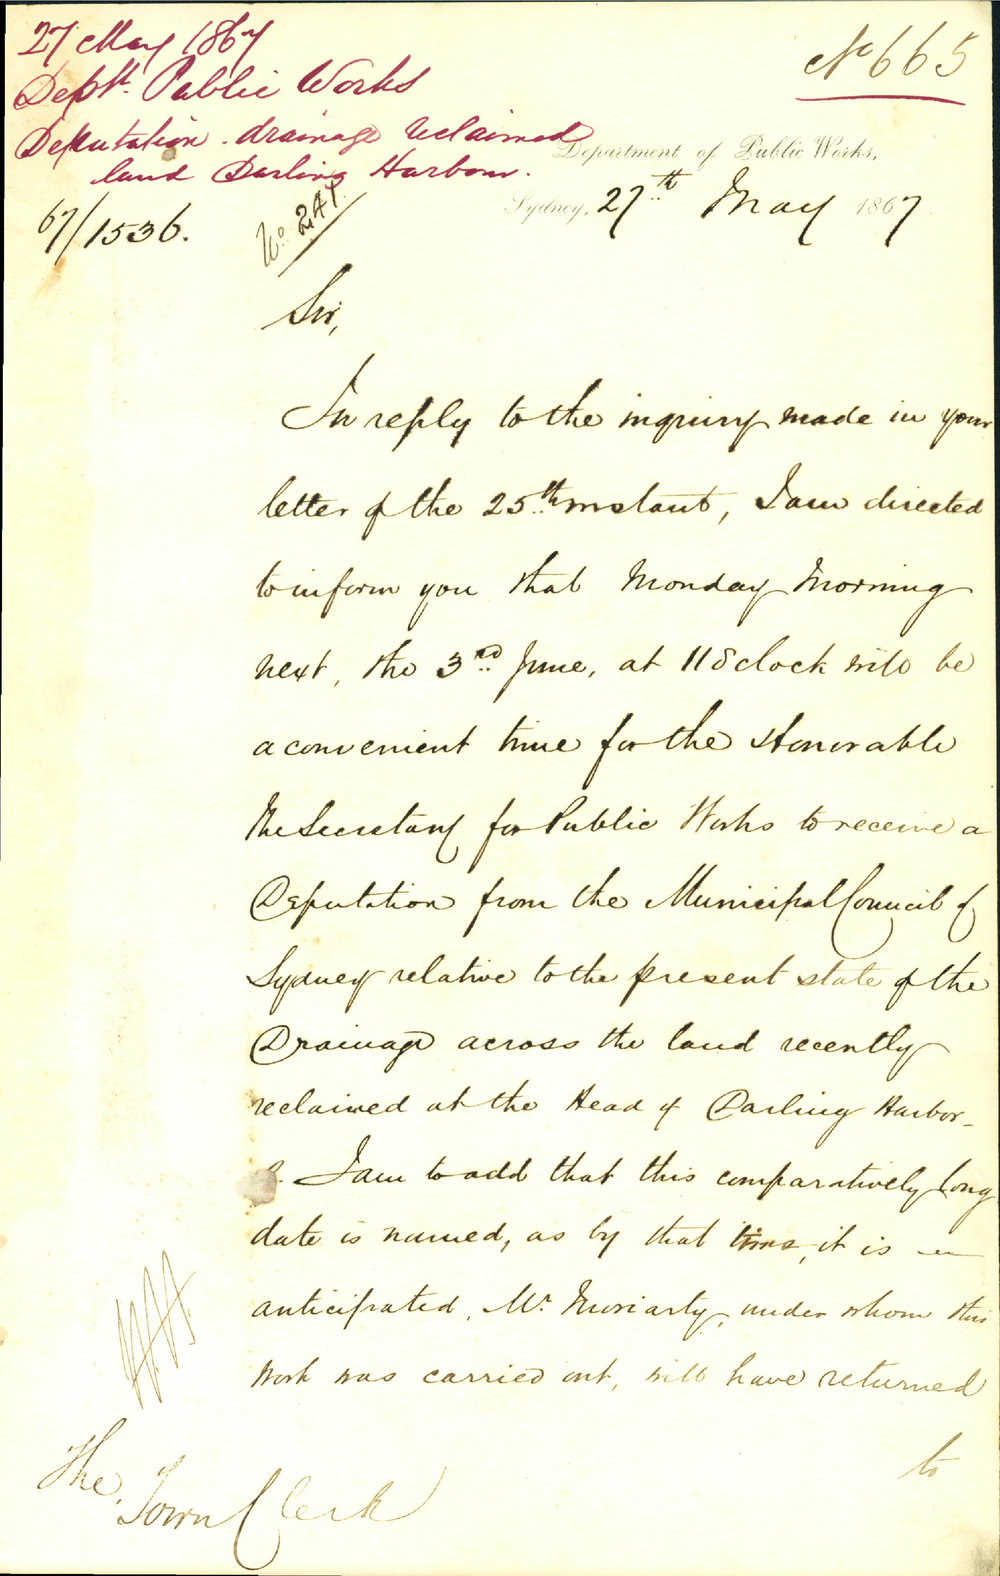 27 May 1867
Dept. Public Works
Deputation. drainage reclaimed
land Darling Harbour.
No 665
Department of Public Works,
Sydney, 27th May 1867
67/1536.
No. 247
Sir,
In reply to the inquiry made in your
letter of the 25th instant, I am directed
to inform you that Monday Morning
next, the 3rd June, at 11 o'clock will be
a convenient time for the Honorable
the Secretary for Public Works to receive a
Deputation from the Municipal Council of
Sydney relative to the present state of the
Drainage across the land recently
reclaimed at the Head of Darling Harbor_
2. I am to add that this comparatively long
date is named, as by that time, it is
anticipated, Mr. Moriarty, under whom this
work was carried out, will have returned
to
The
Town Clerk